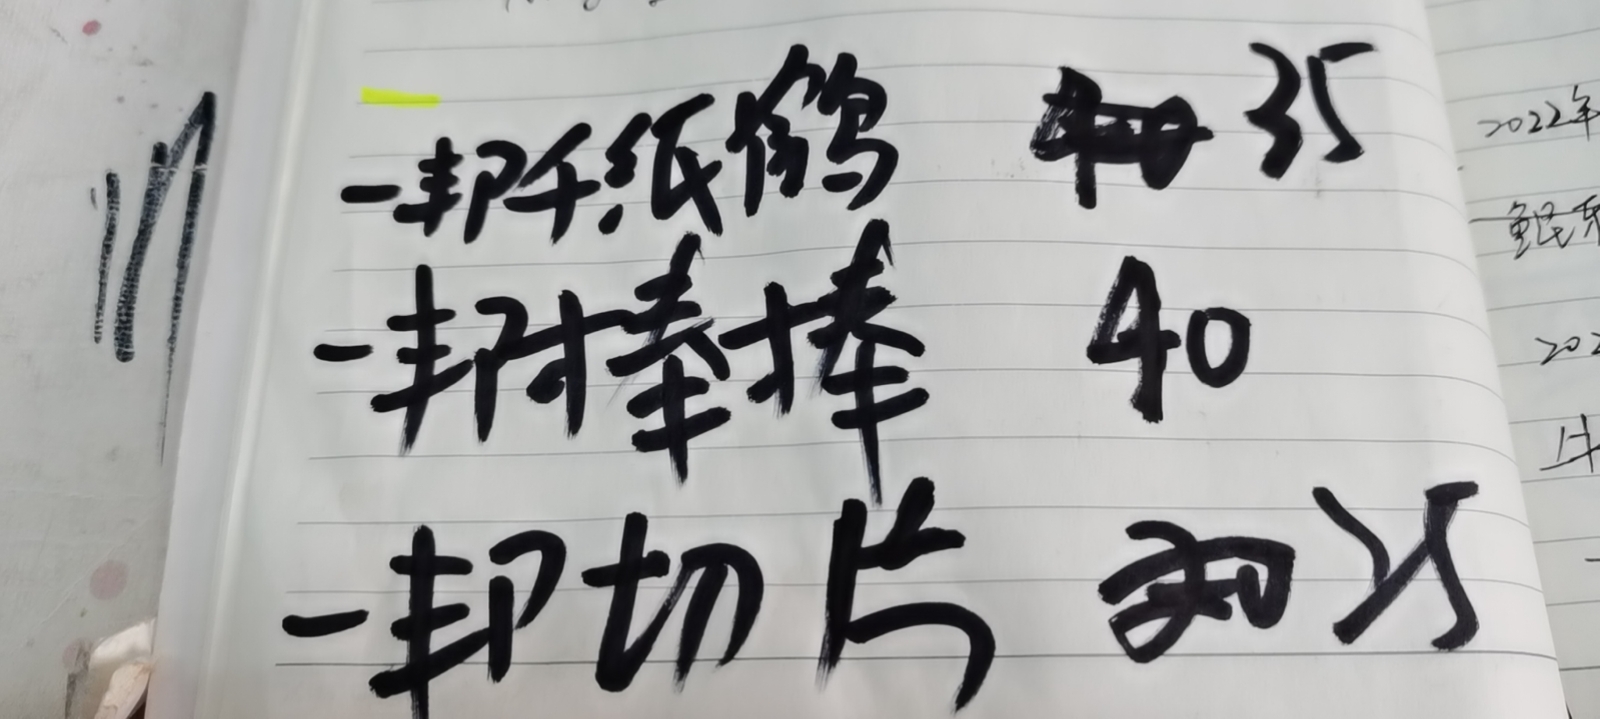 一邦千纸鹤 35
一邦棒棒 40
一邦切片 25
2022年
202